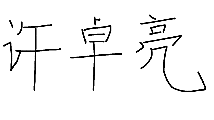 许卓亮